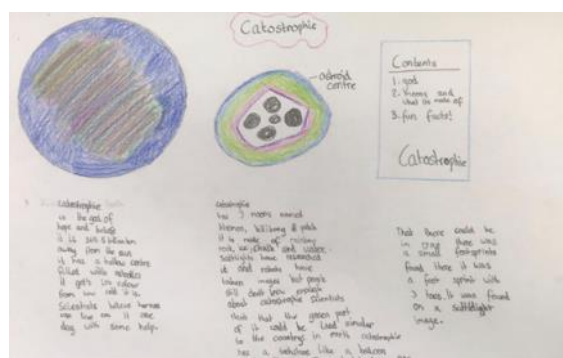 Catostrophie
astroid
centre
Contents
1. god
2. Moons and
what its made of
3. fun facts!
Catostrophie
Catastrophie
is the god of
hope and beliefs
it is 500.5 billion
away from the sun
it has a hollow centre
filled with astroids
it gets its colour
from how cold it is.
Scientists believe humans
can live on it one
day with some help.
catostrophie
has 3 moons named
& pitch
It is made of rainbow
rock, ice, chalk and water.
Satilights have researched
it and robots have
taken images but people
still don't know enough
about catastrophie scientists
think that the green part
of it could be used simular
to the countrys in earth catastrophie
has a texture like a balloon
That there could be
in there was
a small footprints
found Here it was
a foot sprint with
3 toes. It was found
on a satilight
image.